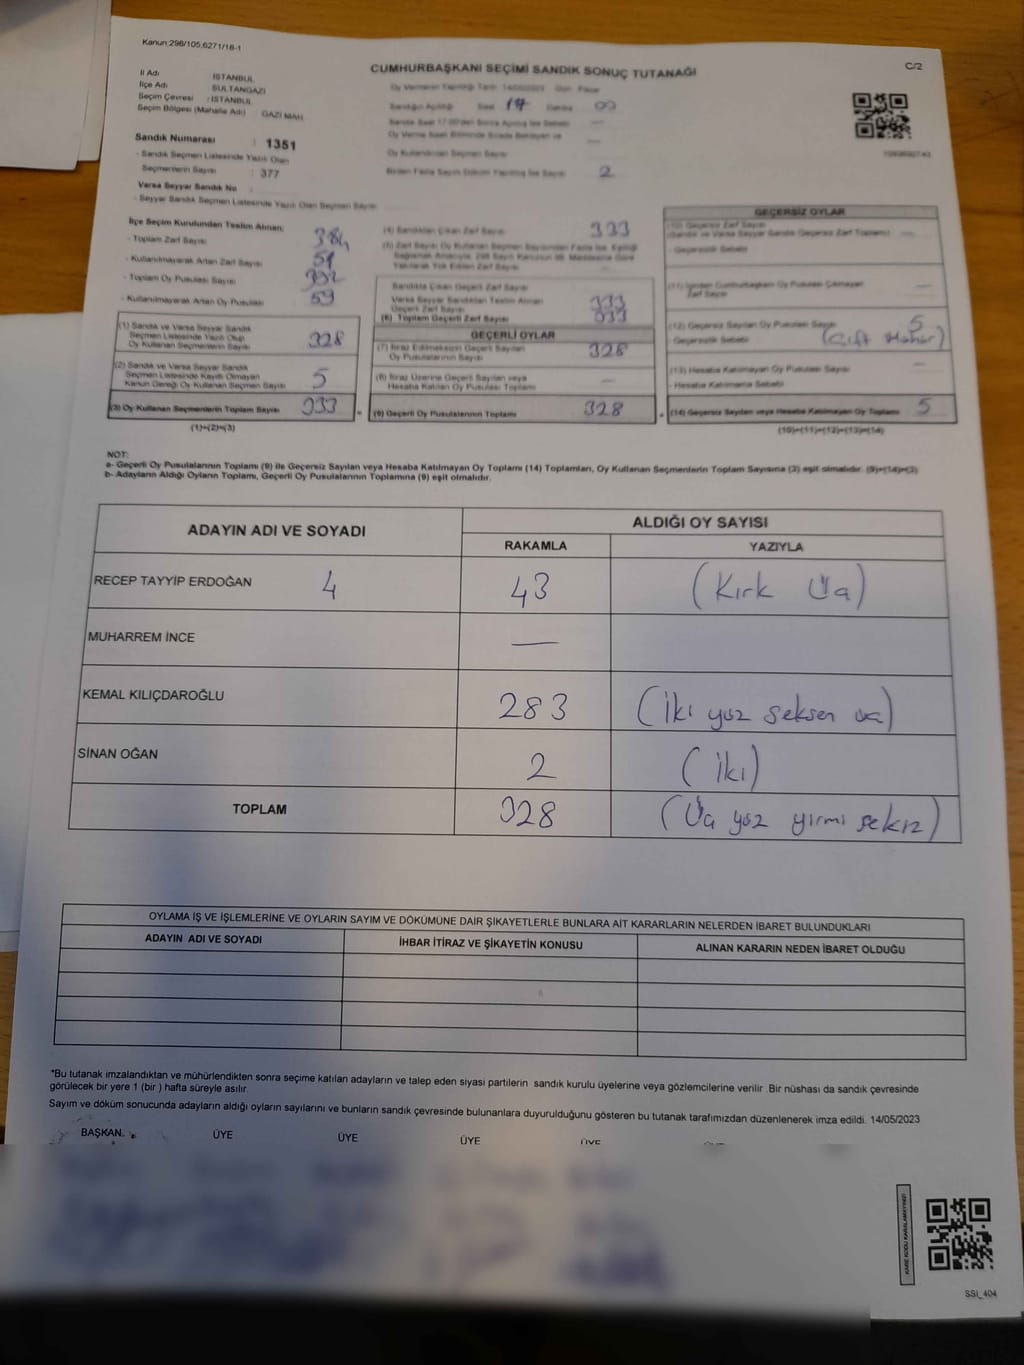 Kanun:298/105,6271/18-1
CUMHURBAŞKANI SEÇİMİ SANDIK SONUÇ TUTANAĞI
C/2
İl Adı İSTANBUL
İlçe Adı SULTANGAZİ
Seçim Çevresi : İSTANBUL
Seçim Bölgesi (Mahalle Adı) : GAZİ MAH.
Sandık Numarası : 1351
- Sandık Seçmen Listesinde Yazılı Olan
Seçmenlerin Sayısı : 377
Varsa Seyyar Sandık No
- Seyyar Sandık Seçmen Listesinde Yazılı Olan Seçmen Sayısı
Oy Vermenin Yapıldığı Tarih 14/05/2023 Gün Pazar
Sandığın Açıldığı Saat 17 Dakika 00
Oy Kullandıran Seçmen Sayısı
Birden Fazla Sayım Döküm Yapılmış İse Sayısı 2
İlçe Seçim Kurulundan Teslim Alınan;
- Toplam Zarf Sayısı 384
- Kullanılmayarak Artan Zarf Sayısı 51
- Toplam Oy Pusulası Sayısı 392
- Kullanılmayarak Artan Oy Pusulası 59
(1) Sandık ve Varsa Seyyar Sandık
Seçmen Listesinde Yazılı Olup
Oy Kullanan Seçmenlerin Sayısı 328
(2) Sandık ve Varsa Seyyar Sandık
Seçmen Listesinde Kayıtlı Olmayan
Kanun Gereği Oy Kullanan Seçmen Sayısı 5
(3) Oy Kullanan Seçmenlerin Toplam Sayısı 333
(1)+(2)=(3)
(4) Sandıktan Çıkan Zarf Sayısı 333
Sandıkta Çıkan Geçerli Zarf Sayısı
Varsa Seyyar Sandıktan Teslim Alınan
Geçerli Zarf Sayısı 333
(6) Toplam Geçerli Zarf Sayısı 333
GEÇERLİ OYLAR
(7) İtiraz Edilmeksizin Geçerli Sayılan
Oy Pusulalarının Sayısı 328
(8) İtiraz Üzerine Geçerli Sayılan veya
Hesaba Katılan Oy Pusulası Toplamı —
(9) Geçerli Oy Pusulalarının Toplamı 328
GEÇERSİZ OYLAR
(10) Geçersiz Zarf Sayısı
(Sandık ve Varsa Seyyar Sandık Geçersiz Zarf Toplamı) —
Geçersizlik Sebebi
(11) İçinden Cumhurbaşkanı Oy Pusulası Çıkmayan
Zarf Sayısı —
(12) Geçersiz Sayılan Oy Pusulası Sayısı 5
Geçersizlik Sebebi (Çift Mühür)
(13) Hesaba Katılmayan Oy Pusulası Sayısı —
- Hesaba Katılmama Sebebi
(14) Geçersiz Sayılan veya Hesaba Katılmayan Oy Toplamı 5
(10)+(11)+(12)+(13)=(14)
NOT:
a- Geçerli Oy Pusulalarının Toplamı (9) ile Geçersiz Sayılan veya Hesaba Katılmayan Oy Toplamı (14) Toplamları, Oy Kullanan Seçmenlerin Toplam Sayısına (3) eşit olmalıdır. (9)+(14)=(3)
b- Adayların Aldığı Oyların Toplamı, Geçerli Oy Pusulalarının Toplamına (9) eşit olmalıdır.
ADAYIN ADI VE SOYADI
ALDIĞI OY SAYISI
RAKAMLA YAZIYLA
RECEP TAYYİP ERDOĞAN 4 43 (Kırk Üç)
MUHARREM İNCE —
KEMAL KILIÇDAROĞLU 283 (İki yüz seksen üç)
SİNAN OĞAN 2 (iki)
TOPLAM 328 (Üç yüz yirmi sekiz)
OYLAMA İŞ VE İŞLEMLERİNE VE OYLARIN SAYIM VE DÖKÜMÜNE DAİR ŞİKAYETLERLE BUNLARA AİT KARARLARIN NELERDEN İBARET BULUNDUKLARI
ADAYIN ADI VE SOYADI İHBAR İTİRAZ VE ŞİKAYETİN KONUSU ALINAN KARARIN NEDEN İBARET OLDUĞU
*Bu tutanak imzalandıktan ve mühürlendikten sonra seçime katılan adayların ve talep eden siyasi partilerin sandık kurulu üyelerine veya gözlemcilerine verilir. Bir nüshası da sandık çevresinde
görülecek bir yere 1 (bir ) hafta süreyle asılır.
Sayım ve döküm sonucunda adayların aldığı oyların sayılarını ve bunların sandık çevresinde bulunanlara duyurulduğunu gösteren bu tutanak tarafımızdan düzenlenerek imza edildi. 14/05/2023
BAŞKAN ÜYE ÜYE ÜYE ÜYE
KARE KODU KARALAMAYINIZ!
SSİ_404